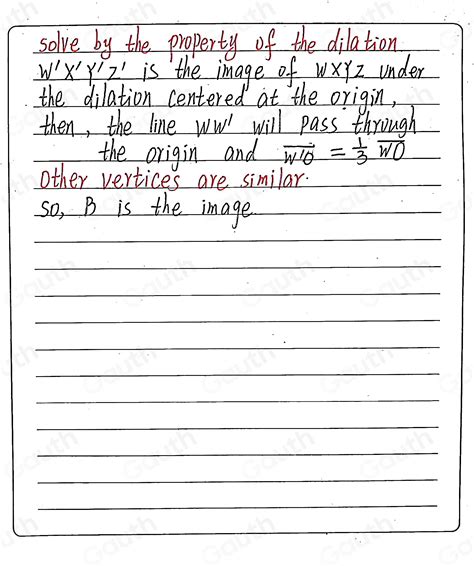 solve by the property of the dilation
W'X'Y'Z' is the image of WXYZ under
the dilation centered at the origin,
then, the line WW' will pass through
the origin and \overline{W'O} = \frac{1}{3} \overline{WO}
Other vertices are similar.
so, B is the image.